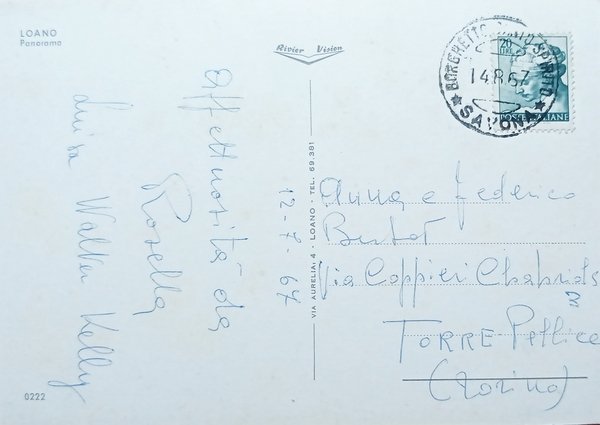 LOANO
Panorama
Rivier Vision
Affettuosità da
Rosella
Luisa Walter Kelly
12-8-67
VIA AURELIA 4 - LOANO - TEL. 69.381
BORGHETTO SANTO SPIRITO
14.8.67
SAVONA
20
LIRE
POSTE ITALIANE
Anna e Federico
Bertot
Via Coppieri Chabriols
TORRE Pellice
(Torino)
0222